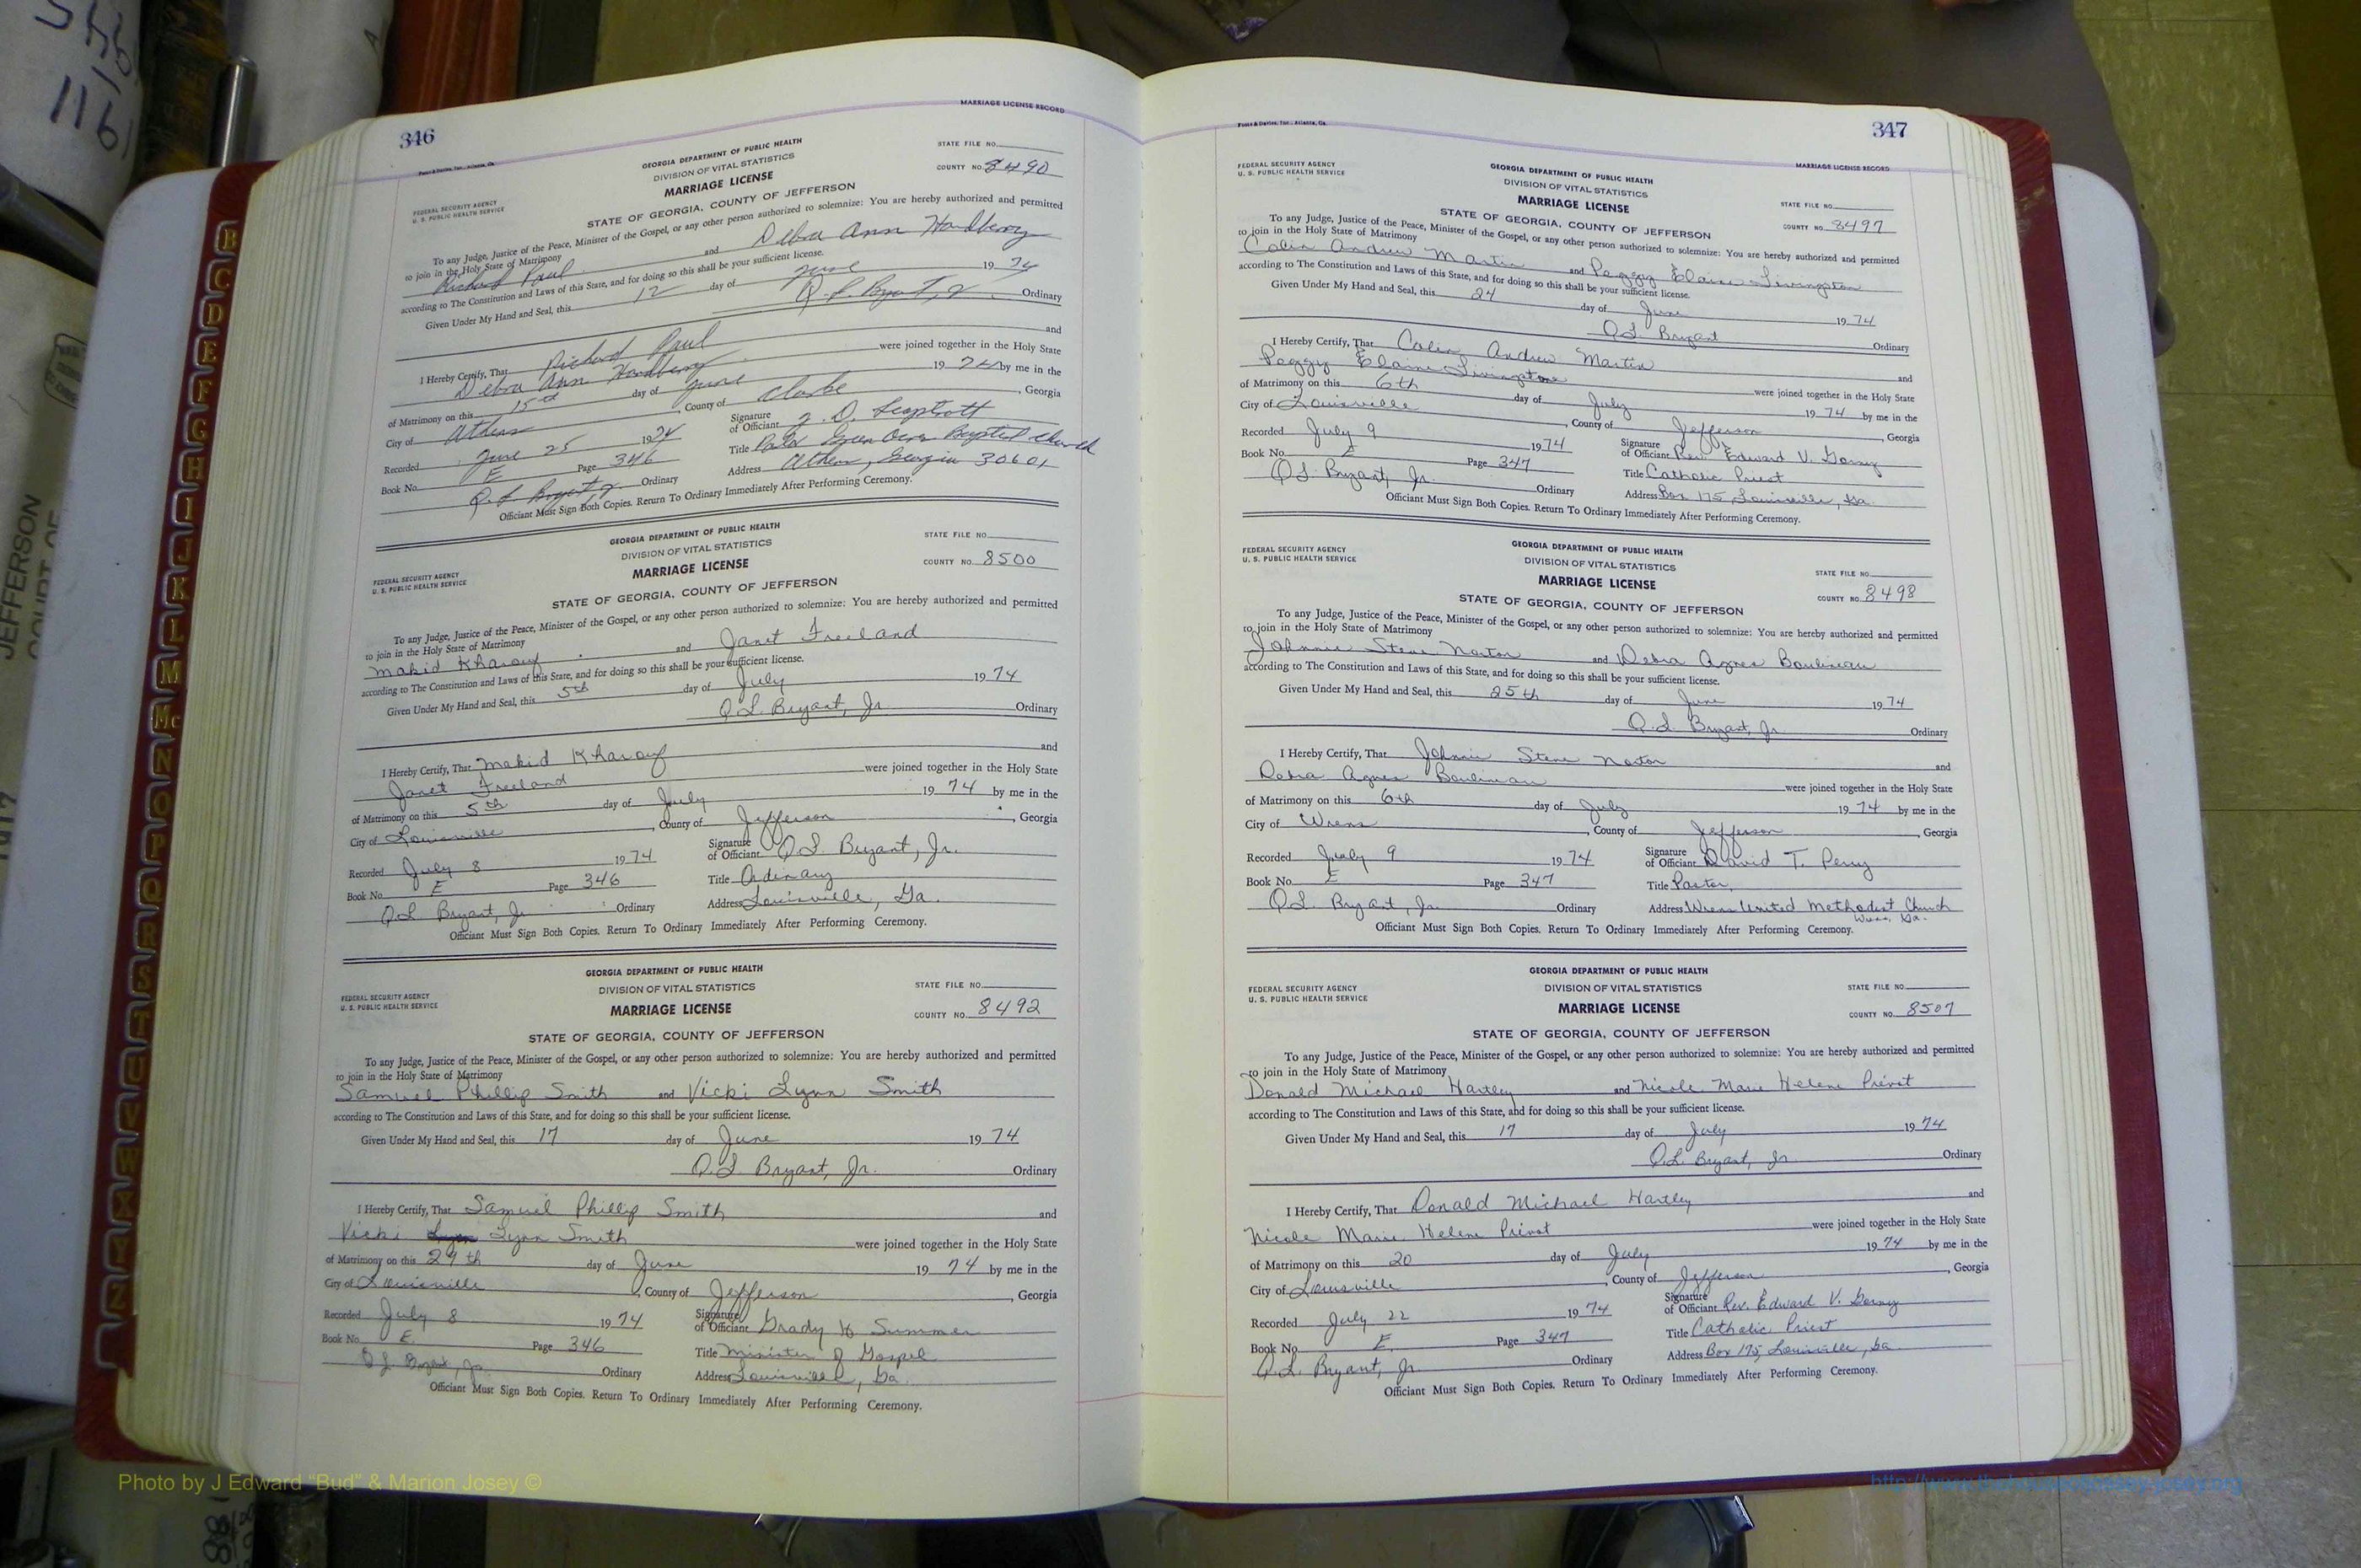 346
MARRIAGE LICENSE RECORD
Foote & Davies, Inc., Atlanta, Ga.
GEORGIA DEPARTMENT OF PUBLIC HEALTH
DIVISION OF VITAL STATISTICS
MARRIAGE LICENSE
STATE FILE NO.
COUNTY NO. 8490
FEDERAL SECURITY AGENCY
U. S. PUBLIC HEALTH SERVICE
STATE OF GEORGIA, COUNTY OF JEFFERSON
To any Judge, Justice of the Peace, Minister of the Gospel, or any other person authorized to solemnize: You are hereby authorized and permitted
to join in the Holy State of Matrimony
Richard Paul and Debra Ann Hardberry
according to The Constitution and Laws of this State, and for doing so this shall be your sufficient license.
Given Under My Hand and Seal, this 12 day of June 1974
Q. L. Bryant, Jr. Ordinary
I Hereby Certify, That Richard Paul and
Debra Ann Hardberry were joined together in the Holy State
of Matrimony on this 15th day of June 1974 by me in the
City of Athens, County of Clarke, Georgia
Recorded June 25 1974 Signature of Officiant J. D.
Book No. E Page 346 Title Baptist Church
Q. L. Bryant Jr. Ordinary Address Athens, Georgia 30601
Officiant Must Sign Both Copies. Return To Ordinary Immediately After Performing Ceremony.
GEORGIA DEPARTMENT OF PUBLIC HEALTH
DIVISION OF VITAL STATISTICS
MARRIAGE LICENSE
STATE FILE NO.
COUNTY NO. 8500
FEDERAL SECURITY AGENCY
U. S. PUBLIC HEALTH SERVICE
STATE OF GEORGIA, COUNTY OF JEFFERSON
To any Judge, Justice of the Peace, Minister of the Gospel, or any other person authorized to solemnize: You are hereby authorized and permitted
to join in the Holy State of Matrimony
Makid Kharouf and Janet Freeland
according to The Constitution and Laws of this State, and for doing so this shall be your sufficient license.
Given Under My Hand and Seal, this 5th day of July 1974
Q.L. Bryant, Jr. Ordinary
I Hereby Certify, That Makid Kharouf and
Janet Freeland were joined together in the Holy State
of Matrimony on this 5th day of July 1974 by me in the
City of Louisville, County of Jefferson, Georgia
Recorded July 8 1974 Signature of Officiant Q.L. Bryant, Jr.
Book No. E Page 346 Title Ordinary
Q.L. Bryant, Jr. Ordinary Address Louisville, Ga.
Officiant Must Sign Both Copies. Return To Ordinary Immediately After Performing Ceremony.
GEORGIA DEPARTMENT OF PUBLIC HEALTH
DIVISION OF VITAL STATISTICS
MARRIAGE LICENSE
STATE FILE NO.
COUNTY NO. 8492
FEDERAL SECURITY AGENCY
U. S. PUBLIC HEALTH SERVICE
STATE OF GEORGIA, COUNTY OF JEFFERSON
To any Judge, Justice of the Peace, Minister of the Gospel, or any other person authorized to solemnize: You are hereby authorized and permitted
to join in the Holy State of Matrimony
Samuel Phillip Smith and Vicki Lynn Smith
according to The Constitution and Laws of this State, and for doing so this shall be your sufficient license.
Given Under My Hand and Seal, this 17 day of June 1974
Q.L Bryant, Jr. Ordinary
I Hereby Certify, That Samuel Phillip Smith and
Vicki Lynn Smith were joined together in the Holy State
of Matrimony on this 29th day of June 1974 by me in the
City of Louisville, County of Jefferson, Georgia
Recorded July 8 1974 Signature of Officiant Grady H Summer
Book No. E Page 346 Title Minister of Gospel
Q L Bryant, Jr. Ordinary Address Louisville, Ga.
Officiant Must Sign Both Copies. Return To Ordinary Immediately After Performing Ceremony.
347
Foote & Davies, Inc., Atlanta, Ga.
MARRIAGE LICENSE RECORD
FEDERAL SECURITY AGENCY
U. S. PUBLIC HEALTH SERVICE
GEORGIA DEPARTMENT OF PUBLIC HEALTH
DIVISION OF VITAL STATISTICS
MARRIAGE LICENSE
STATE FILE NO.
COUNTY NO. 8497
STATE OF GEORGIA, COUNTY OF JEFFERSON
To any Judge, Justice of the Peace, Minister of the Gospel, or any other person authorized to solemnize: You are hereby authorized and permitted
to join in the Holy State of Matrimony
Colin Andrew Martin and Peggy Elaine Livingston
according to The Constitution and Laws of this State, and for doing so this shall be your sufficient license.
Given Under My Hand and Seal, this 24 day of June 1974
Q.L. Bryant Ordinary
I Hereby Certify, That Colin Andrew Martin and
Peggy Elaine Livingston were joined together in the Holy State
of Matrimony on this 6th day of July 1974 by me in the
City of Louisville, County of Jefferson, Georgia
Recorded July 9 1974 Signature of Officiant Rev. Edward V.
Book No. E Page 347 Title Catholic Priest
Q.L. Bryant, Jr. Ordinary Address Box 175, Louisville, Ga.
Officiant Must Sign Both Copies. Return To Ordinary Immediately After Performing Ceremony.
FEDERAL SECURITY AGENCY
U. S. PUBLIC HEALTH SERVICE
GEORGIA DEPARTMENT OF PUBLIC HEALTH
DIVISION OF VITAL STATISTICS
MARRIAGE LICENSE
STATE FILE NO.
COUNTY NO. 8498
STATE OF GEORGIA, COUNTY OF JEFFERSON
To any Judge, Justice of the Peace, Minister of the Gospel, or any other person authorized to solemnize: You are hereby authorized and permitted
to join in the Holy State of Matrimony
Johnnie Steve Norton and Debra Agnes Boulineau
according to The Constitution and Laws of this State, and for doing so this shall be your sufficient license.
Given Under My Hand and Seal, this 25th day of June 1974
Q.L. Bryant, Jr Ordinary
I Hereby Certify, That Johnnie Steve Norton and
Debra Agnes Boulineau were joined together in the Holy State
of Matrimony on this 6th day of July 1974 by me in the
City of Wrens, County of Jefferson, Georgia
Recorded July 9 1974 Signature of Officiant David T. Perry
Book No. E Page 347 Title Pastor,
Q.L. Bryant, Jr. Ordinary Address Wrens United Methodist Church
Wrens, Ga.
Officiant Must Sign Both Copies. Return To Ordinary Immediately After Performing Ceremony.
FEDERAL SECURITY AGENCY
U. S. PUBLIC HEALTH SERVICE
GEORGIA DEPARTMENT OF PUBLIC HEALTH
DIVISION OF VITAL STATISTICS
MARRIAGE LICENSE
STATE FILE NO.
COUNTY NO. 8507
STATE OF GEORGIA, COUNTY OF JEFFERSON
To any Judge, Justice of the Peace, Minister of the Gospel, or any other person authorized to solemnize: You are hereby authorized and permitted
to join in the Holy State of Matrimony
Donald Michael Hartley and Nicole Marie Helene Privot
according to The Constitution and Laws of this State, and for doing so this shall be your sufficient license.
Given Under My Hand and Seal, this 17 day of July 1974
Q.L. Bryant, Jr. Ordinary
I Hereby Certify, That Donald Michael Hartley and
Nicole Marie Helene Privot were joined together in the Holy State
of Matrimony on this 20 day of July 1974 by me in the
City of Louisville, County of Jefferson, Georgia
Recorded July 22 1974 Signature of Officiant Rev. Edward V.
Book No. E. Page 347 Title Catholic Priest
Q.L. Bryant, Jr. Ordinary Address Box 175, Louisville, Ga.
Officiant Must Sign Both Copies. Return To Ordinary Immediately After Performing Ceremony.
B
C
D
E
F
G
H
I
J
K
L
M
Mc
N
O
P
Q
R
S
T
U
V
W
X
Y
Z
JEFFERSON
COURT OF
Photo by J Edward “Bud” & Marion Josey ©